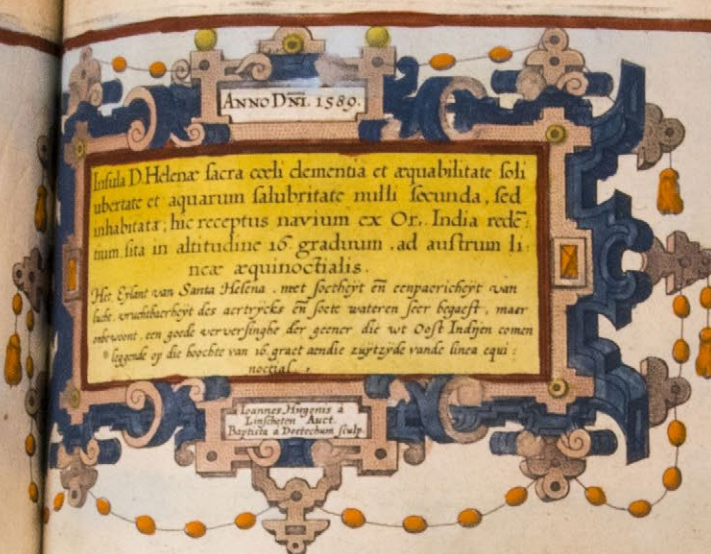 ANNO DN̄I. 1589.
Insula D. Helenæ sacra cœli clementia et æquabilitate soli
ubertate et aquarum salubritate nulli secunda, sed
inhabitata; hic receptus navium ex Or. India redē:
tium. sita in altitudine 16 graduum . ad austrum li:
neæ æquinoctialis.
Het Eylant van Santa Helena . met soetheyt en̄ eenpaericheyt van
lucht, vruchtbaerheyt des aertrijcks en̄ soete wateren seer begaeft, maer
onbewoont, een goede ververſinghe der geener die wt Oost Indijen comen
leggende op die hoochte van 16. graet aendie zuijtzijde vande linea equi:
noctial.
Ioannes Hugonis à
Linschoten Auct.
Baptista a Doetechum sculp.